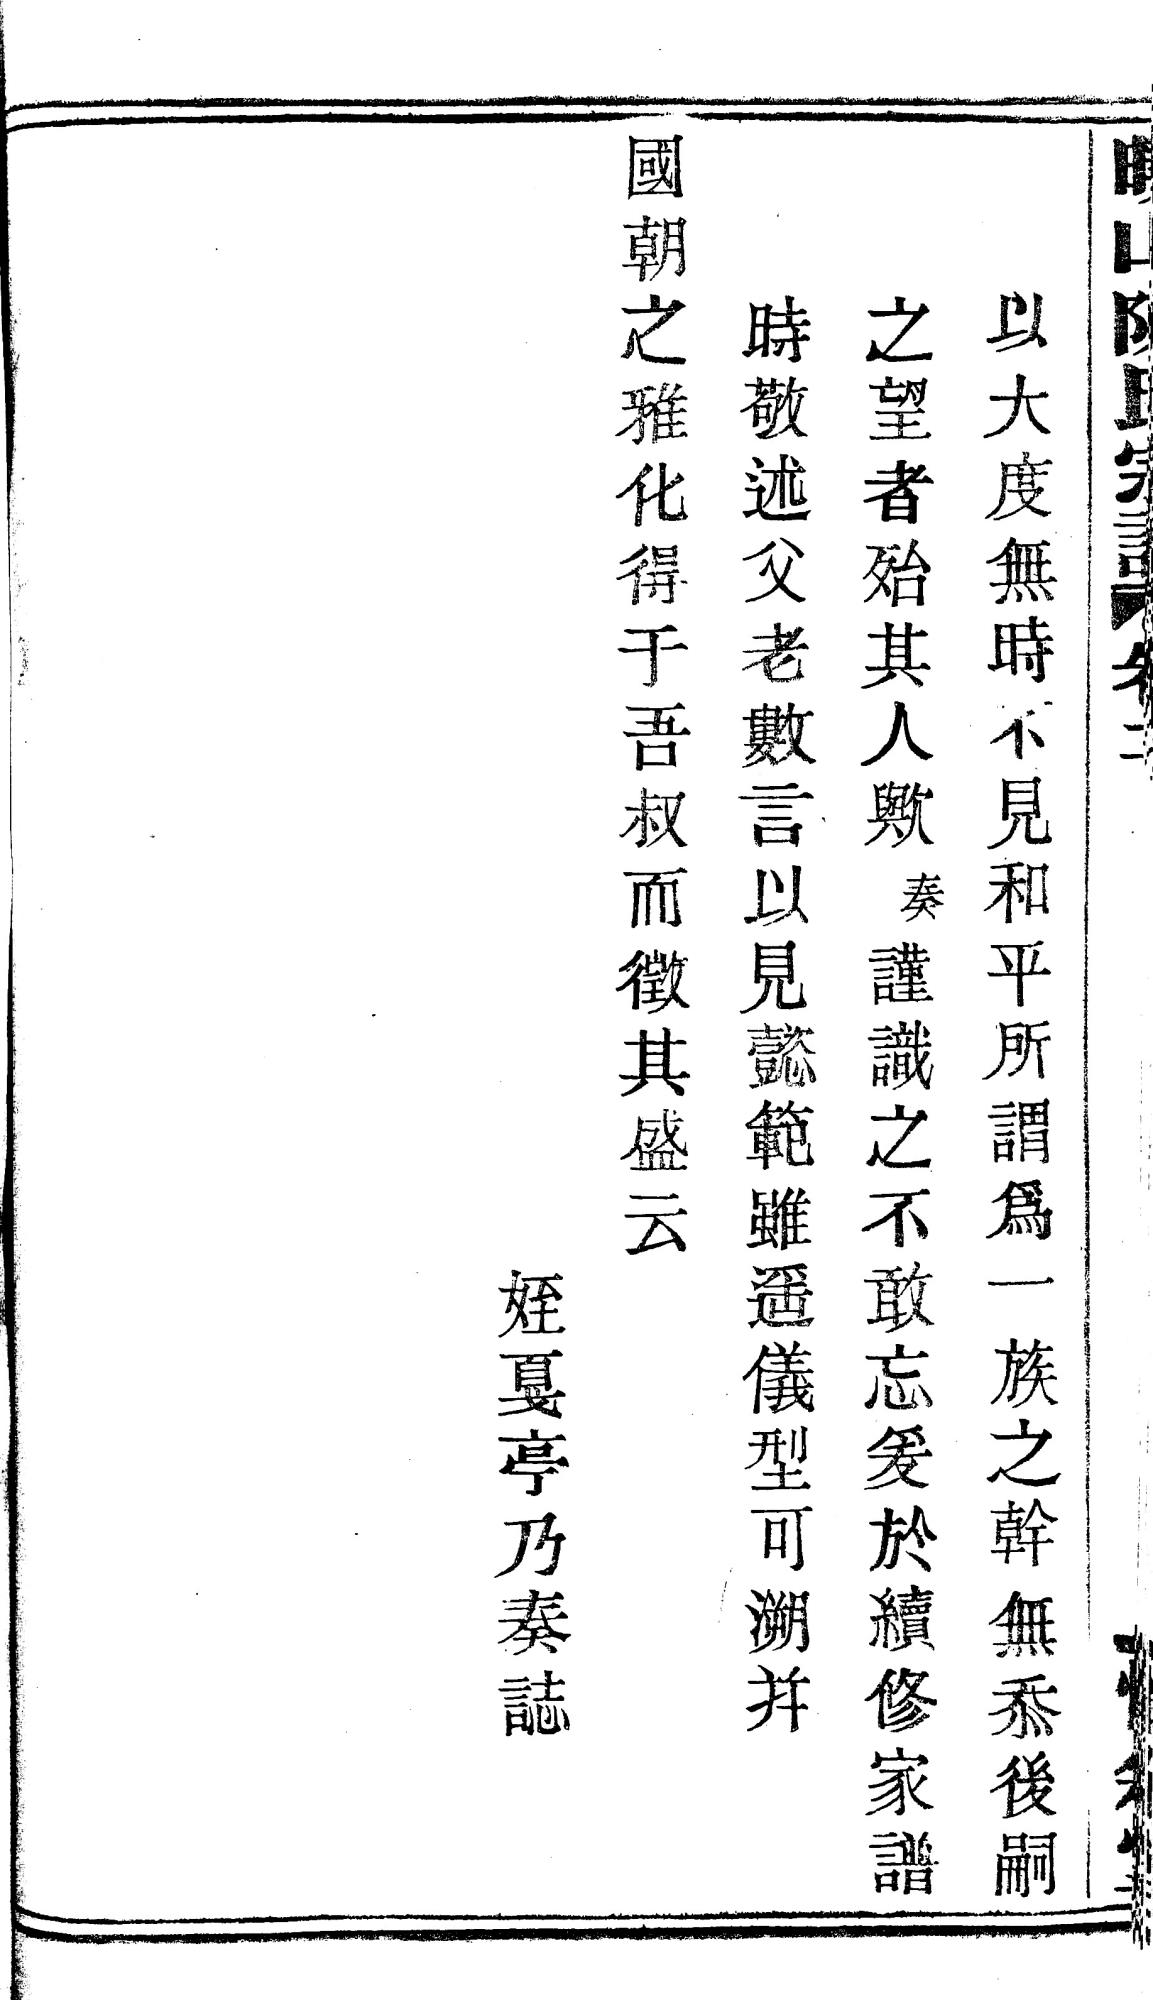 以大度無時不見和平所謂爲一族之幹無忝後嗣
之望者殆其人歟奏謹識之不敢忘爰於續修家譜
時敬述父老數言以見懿範雖遥儀型可溯幷
國朝之雅化得于吾叔而徵其盛云
姪戛亭乃奏誌